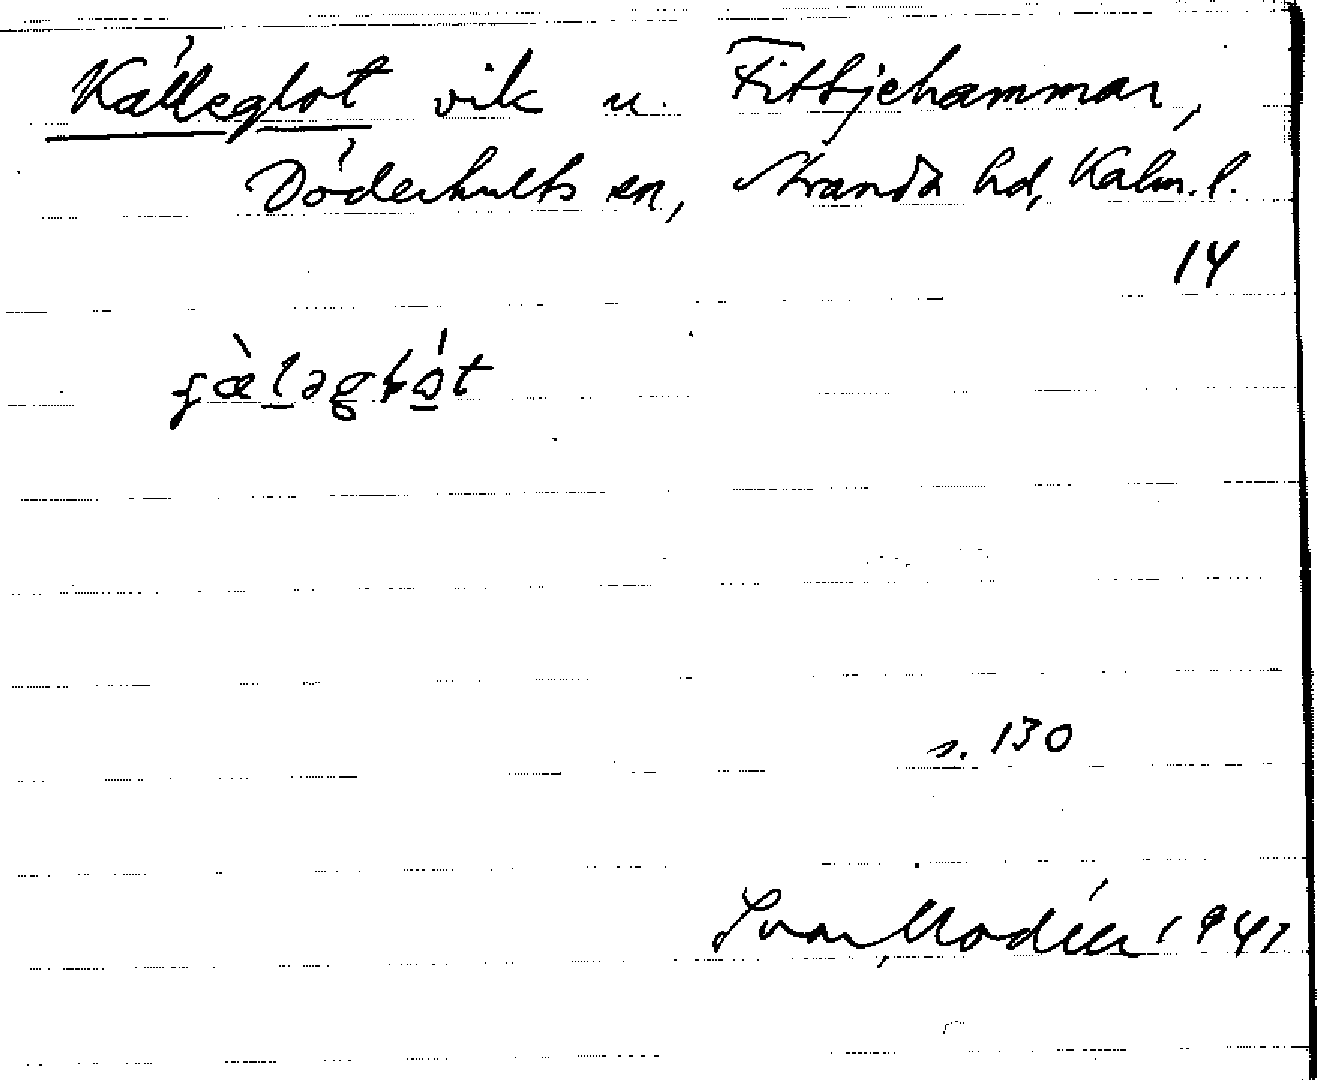 Källeglot vik u. Fittjehammar,
Döderhults sn, Stranda hd, Kalm. l.
14
s. 130
Ivar Modéer 1941